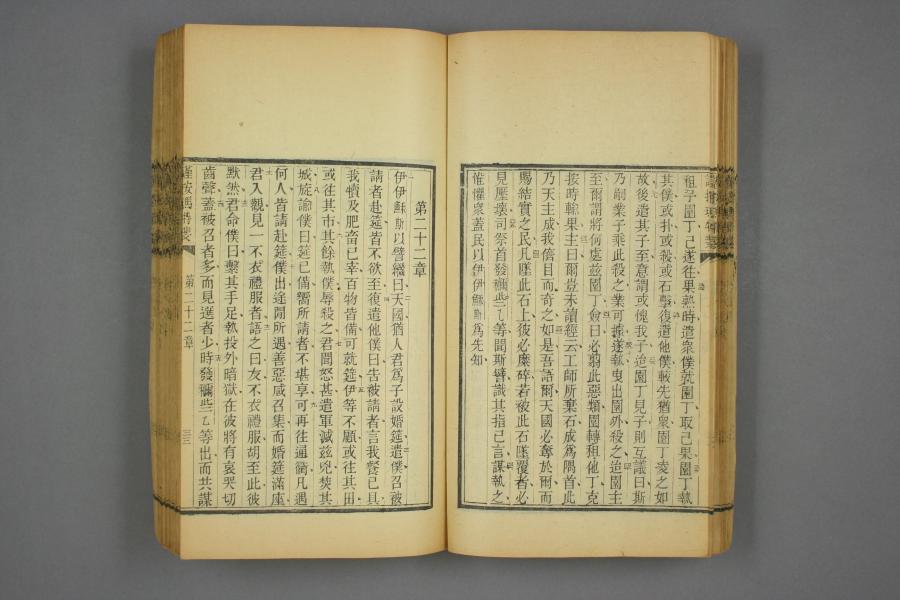 租予園丁己遂往果熟時遣衆僕就園丁取己果園丁執
其僕或扑或殺或石擊復遣他僕較先猶衆園丁處之如
故後遣其子至意謂或愧我子迨園丁見子則互議曰斯
乃嗣業子乘此殺之業可據遂執曳出園外殺之迨園主
至爾謂將何處兹園丁僉曰必剪此惡類園轉租他丁克
按時輸果主曰爾豈未讀經云工師所棄石成爲隅首此
乃天主成我儕目而奇之如是吾語爾天國必奪於爾而
賜結實之民凡墜此石上彼必糜碎若被此石墜覆者必
見壓壞司祭首發𠾶等聞斯譬識其指己言謀執之
惟懼衆蓋民以伊伊穌斯爲先知
第二十二章
伊伊穌斯以譬繼曰天國猶人君爲子設婚筵遣僕召被
請者赴筵皆不欲至復遣他僕曰告被請者言我餐已具
我犢及肥畜已宰百物皆備可就筵伊等不顧或往其田
或往其市其餘執僕辱殺之君聞怒甚遣軍滅兹兇焚其
城旋諭僕曰筵已備嚮所請者不堪享可再往通衢凡遇
何人皆請赴筵僕出途間所遇善惡咸召集而婚筵滿座
君入觀見一不衣禮服者語之曰友不衣禮服胡至此彼
默然君命僕曰繫其手足執投外暗獄在彼將有哀哭切
齒聲蓋被召者多而見選者少時發等出而共謀
第二十二章